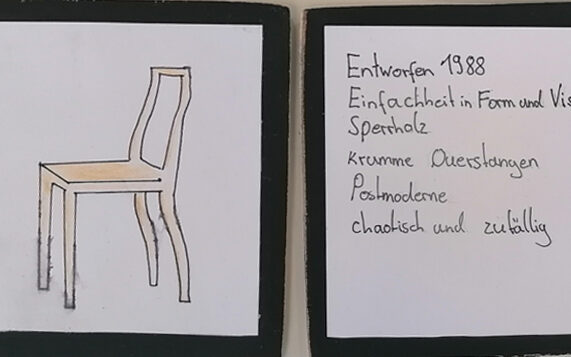 Entworfen 1988
Einfachheit in Form und Vis
Sperrholz
Krumme Querstangen
Postmoderne
chaotisch und zufällig